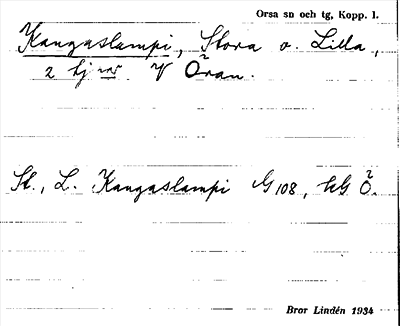 Orsa sn och tg, Kopp. l.
Kangaslampi, Stora o. Lilla,
2 tj V Öran.
St., L. Kangaslampi G108, Ö.
Bror Lindén 1934